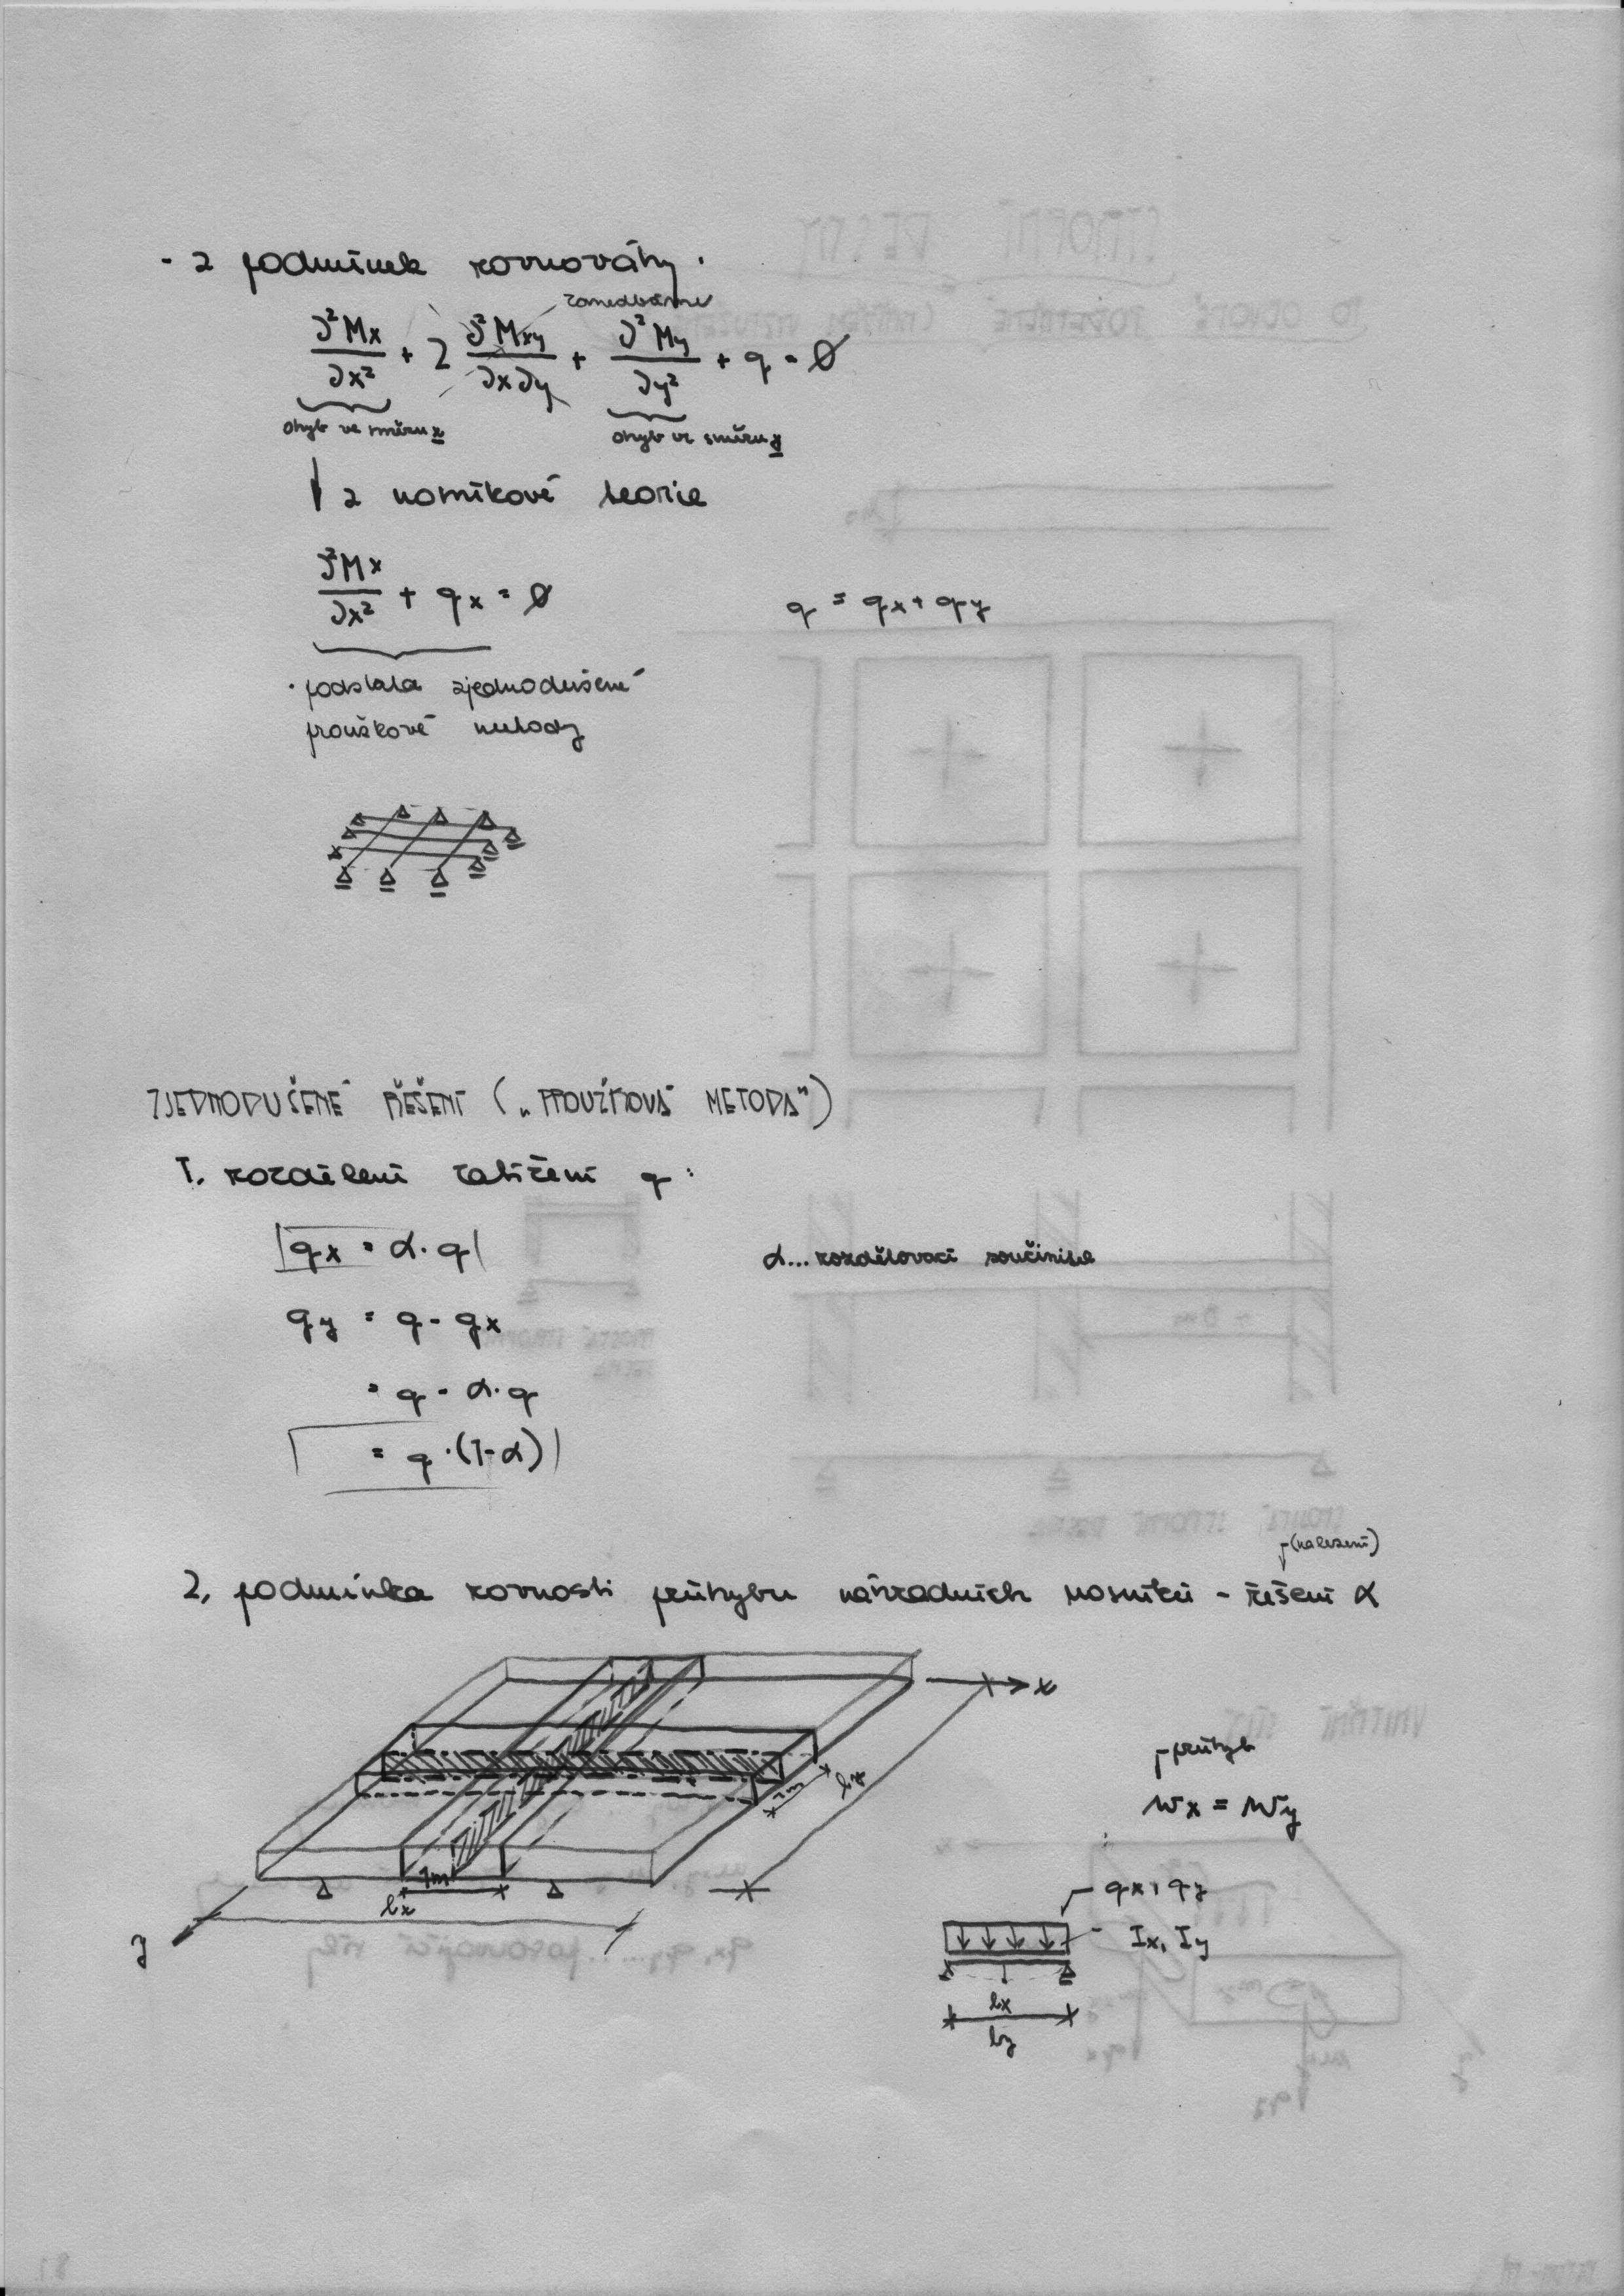 - z podmínek rovnováhy:
zanedbáme
∂²Mx/∂x² + 2 ∂²Mxy/∂x∂y + ∂²My/∂y² + q = 0
ohyb ve směru x
ohyb ve směru y
z nosníkové teorie
∂²Mx/∂x² + qx = 0
q = qx + qy
· podstata zjednodušené
proužkové metody
ZJEDNODUŠENÉ ŘEŠENÍ („PROUŽKOVÁ METODA")
1. rozdělení zatížení q:
qx = α · q
α... rozdělovací součinitel
qy = q - qx
= q - α · q
= q · (1-α)
(nalezení)
2, podmínka rovnosti průhybu náhradních nosníků - řešení α
x
průhyb
wx = wy
1m
ly
1m
lx
y
qx, qy
Ix, Iy
lx
ly